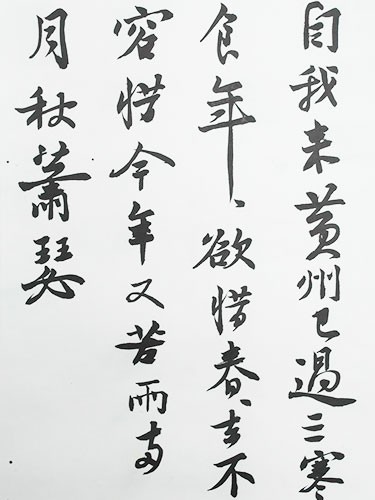 自我来黄州已過三寒
食年〻欲惜春〻去不
容惜今年又苦雨两
月秋蕭瑟